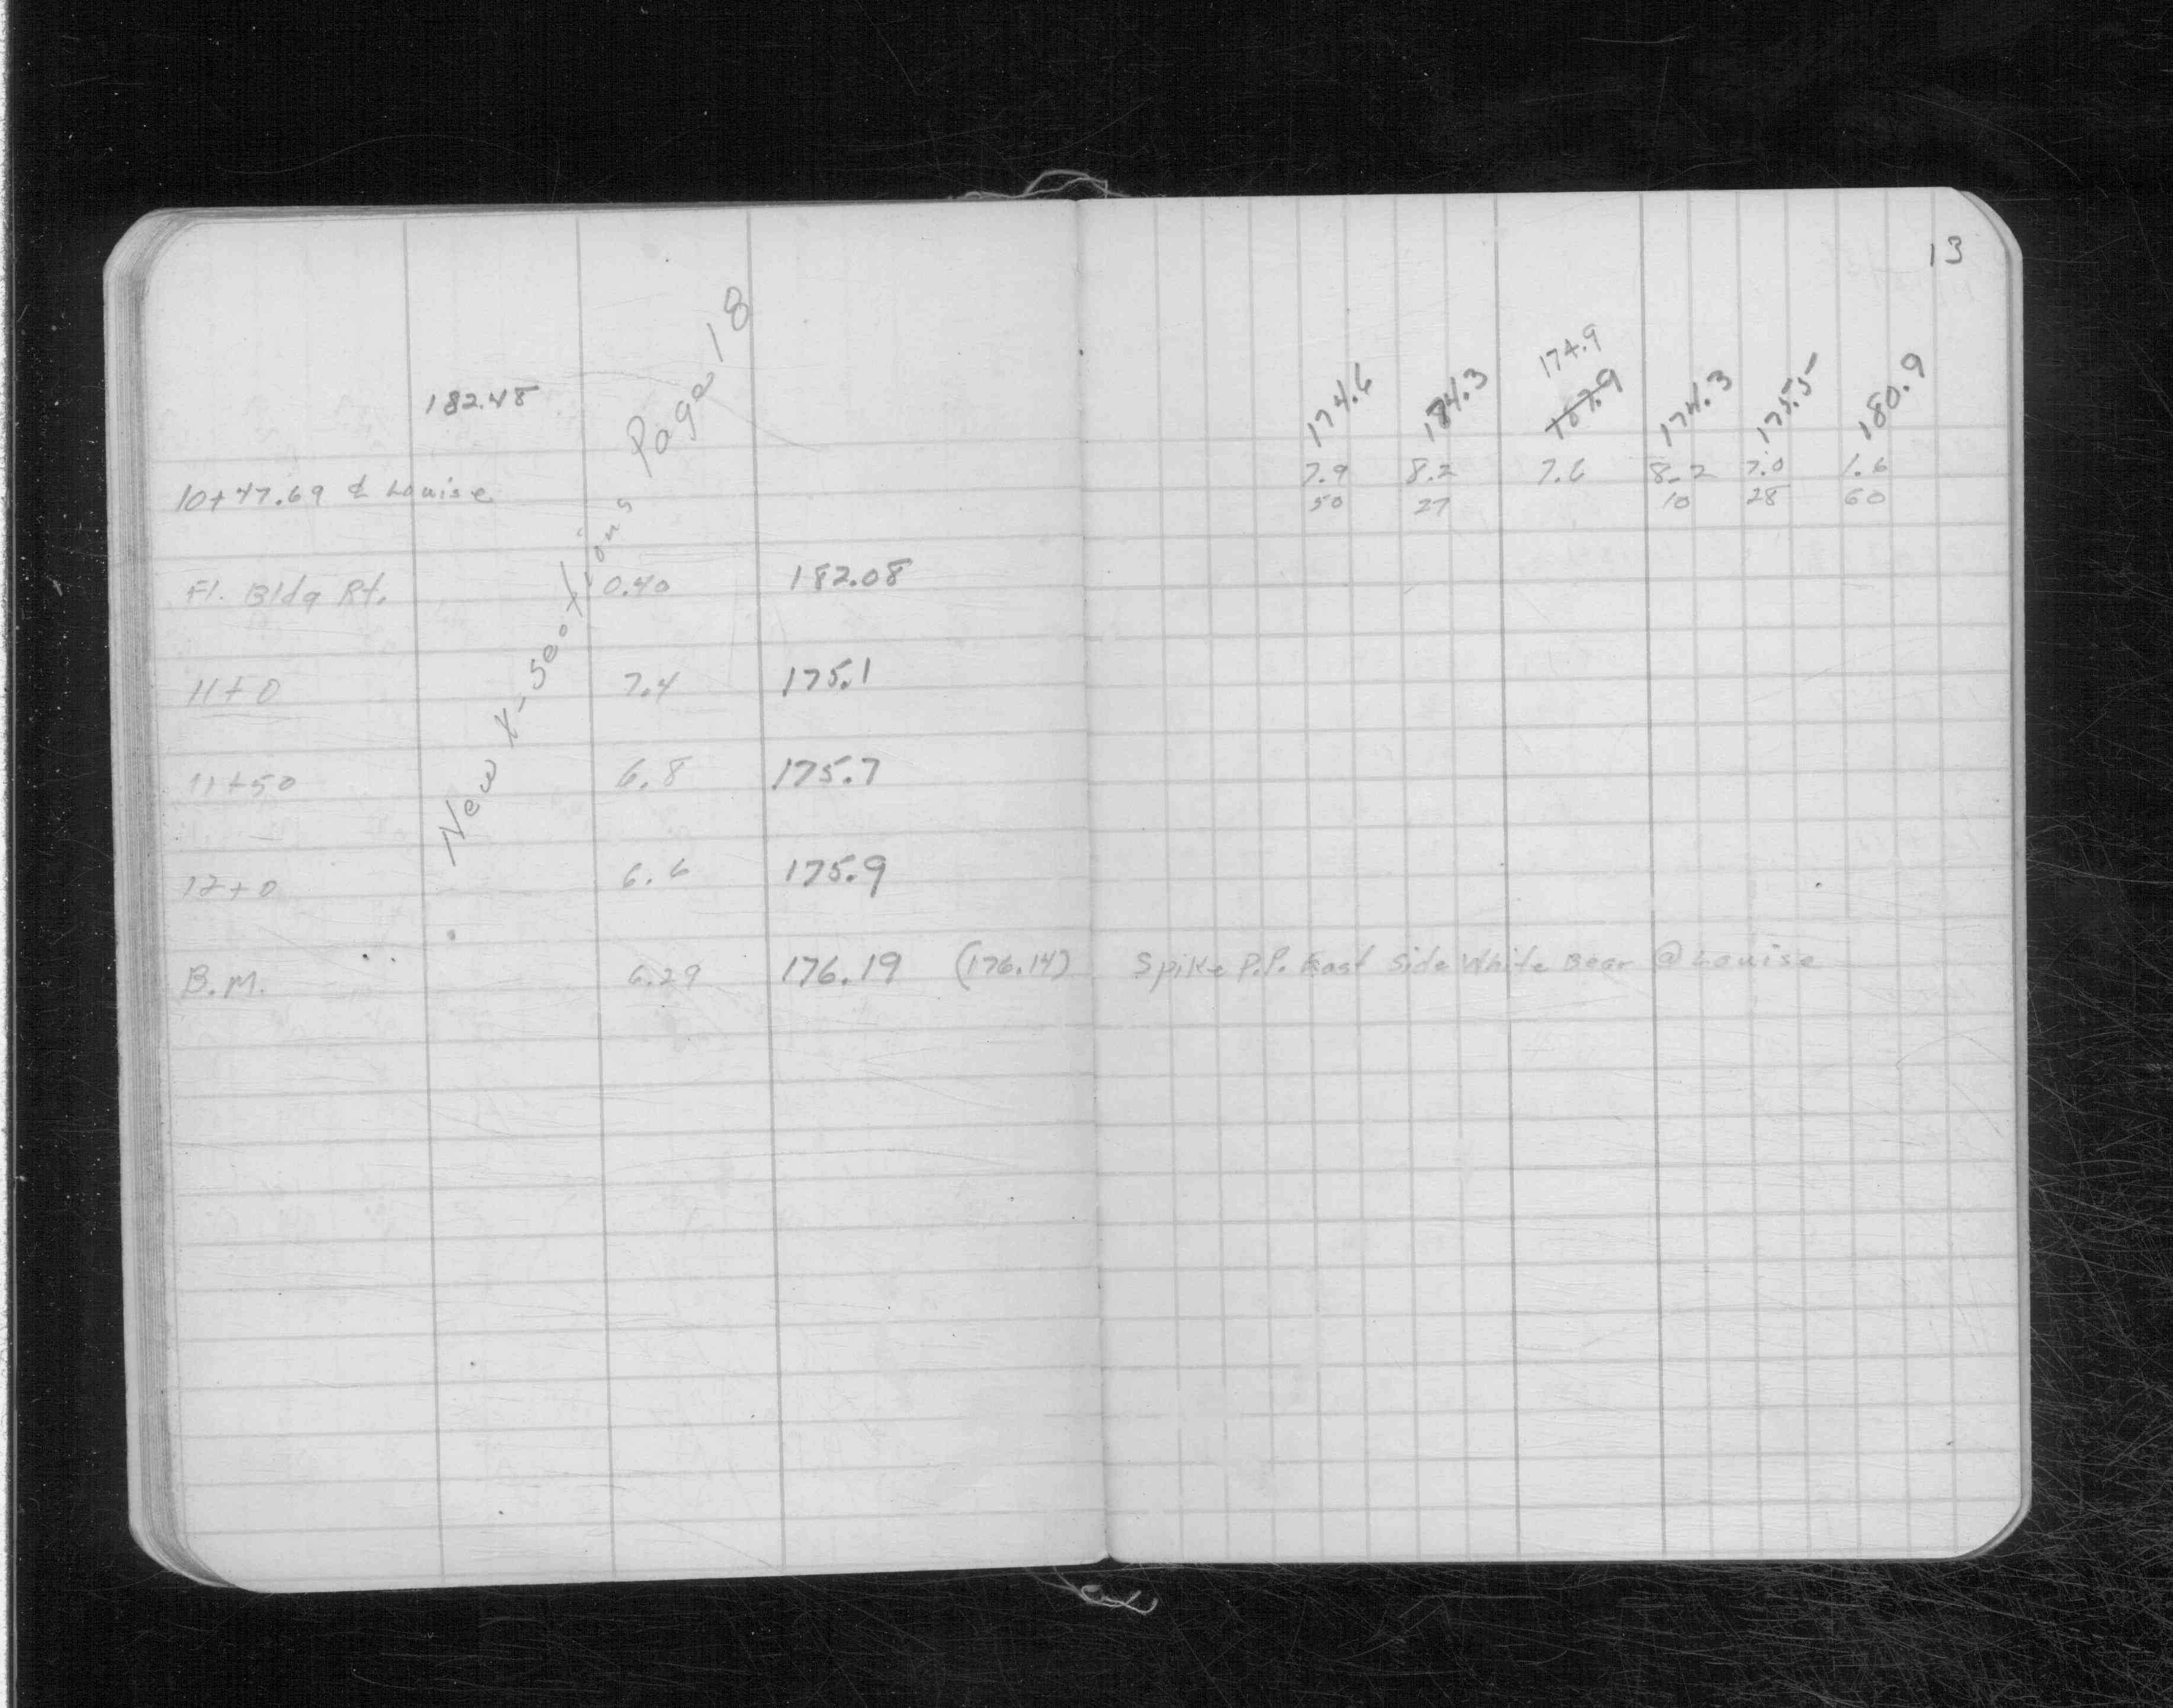 13
174.9
174.6 174.3 167.9 174.3 175.5 180.9
182.48
7.9 8.2 7.6 8.2 7.0 1.6
10+47.69 ℄ Louise
50 27 10 28 60
Fl. Bldg Rt. 0.40 182.08
11+0 7.4 175.1
11+50 6.8 175.7
12+0 6.6 175.9
B.M. 6.29 176.19 (176.14) Spike P.P. East Side White Bear @ Louise
New X-Sections Page 18